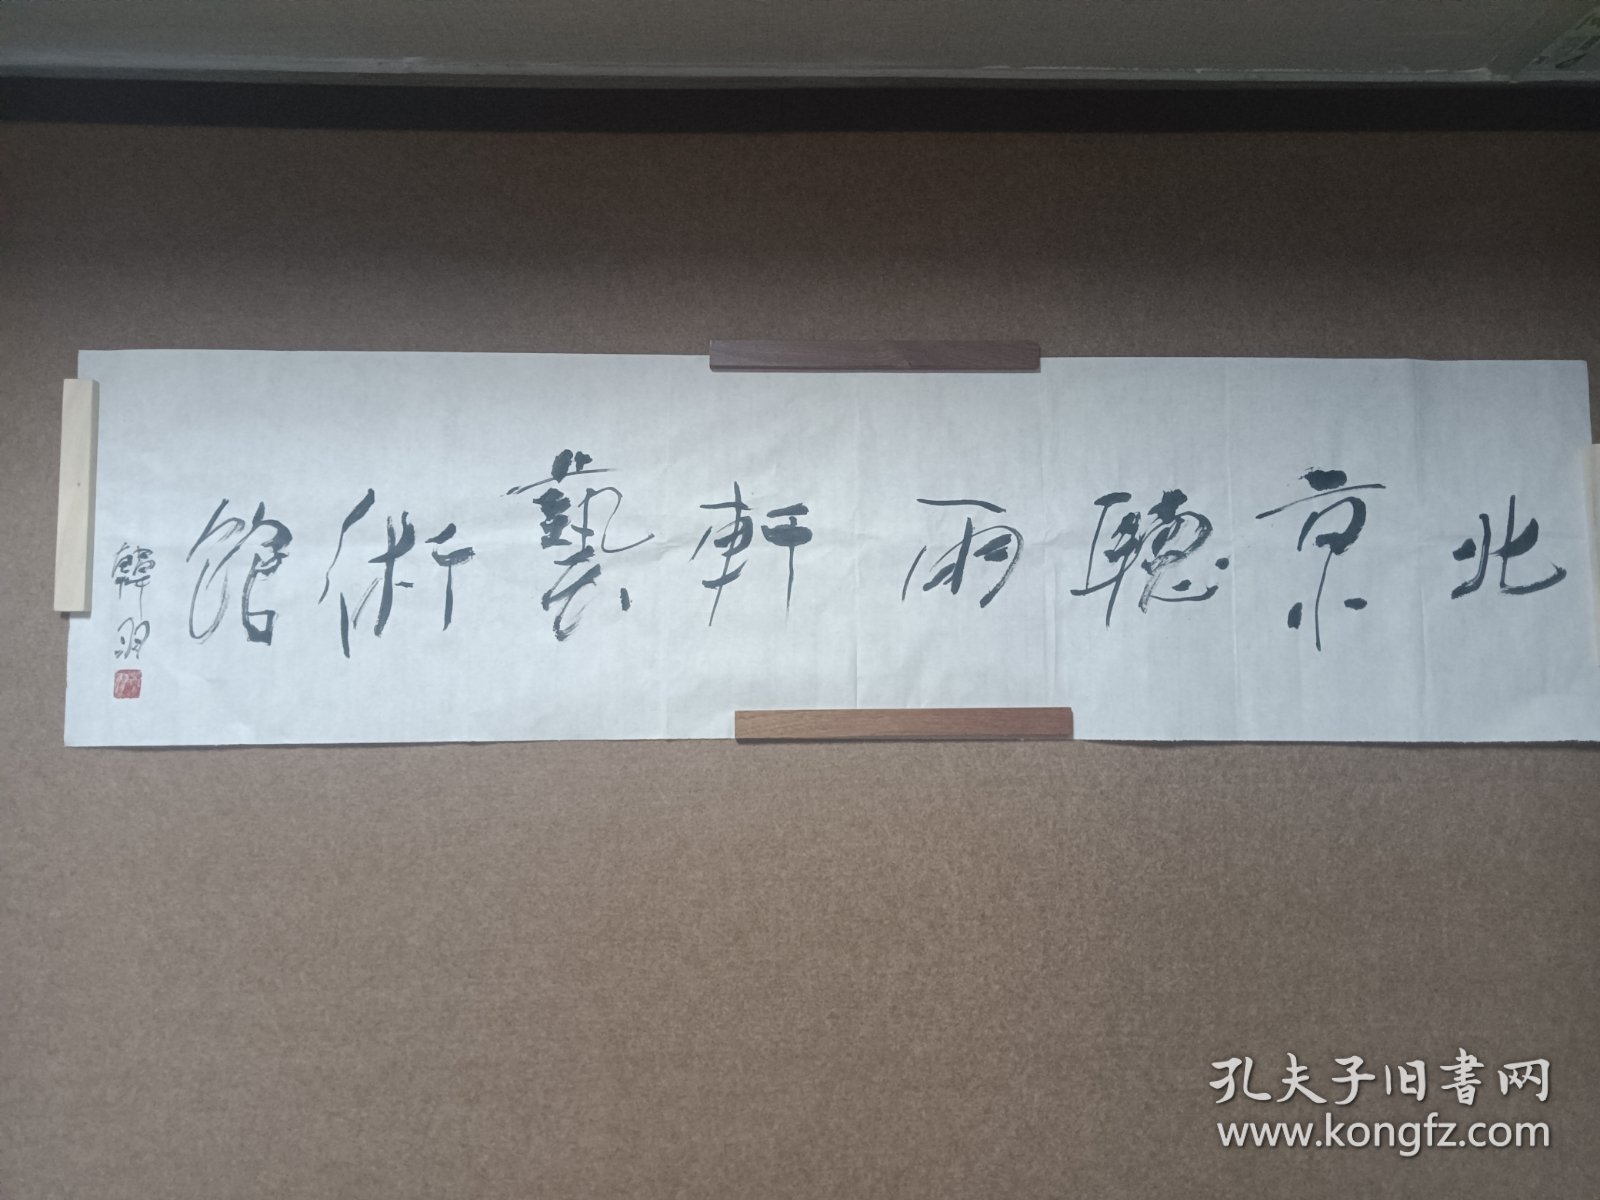 北京聽雨軒藝術館
韓羽
孔夫子旧書网
www.kongfz.com